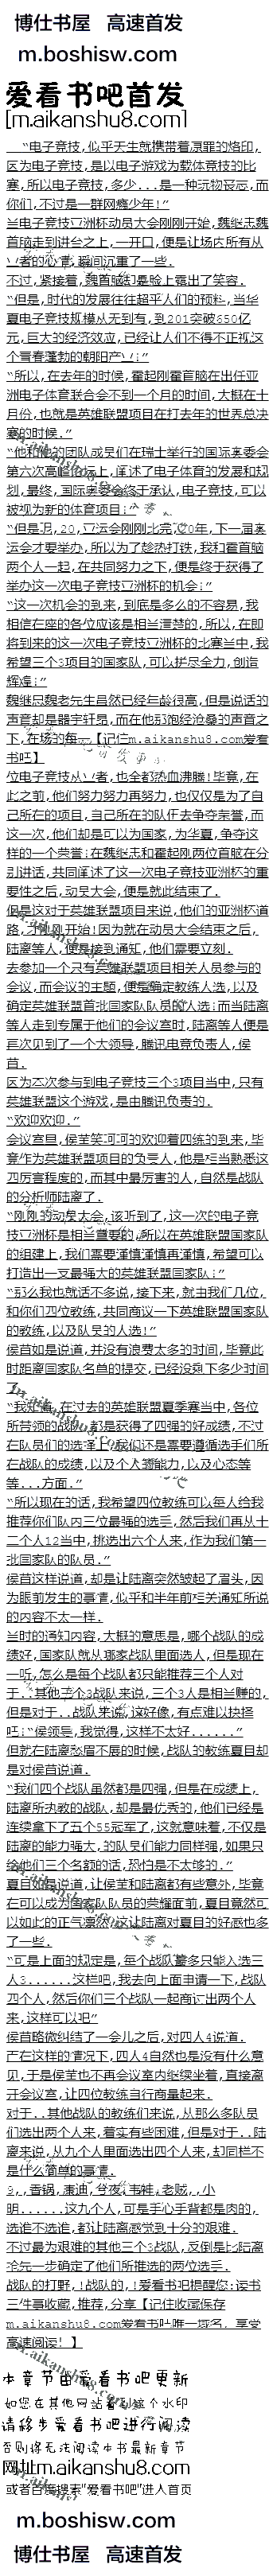 博仕书屋 高速首发
m.boshisw.com
爱看书吧首发
[m.aikanshu8.com]
“电子竞技,似乎天生就携带着原罪的烙印,
因为电子竞技,是以电子游戏为载体竞技的比
赛,所以电子竞技,多少...是一种玩物丧志,而
你们,不过是一群网瘾少年!”
首脑走到讲台之上,一开口,便是让场内所有从
业者的心情,瞬间沉重了一些.
不过,紧接着,魏首脑却是脸上露出了笑容.
“但是,时代的发展往往超乎人们的预料,当华
夏电子竞技规模从无到有,到201突破650亿
元,巨大的经济效应,已经让人们不得不正视这
个青春蓬勃的朝阳产业!”
“所以,在去年的时候,霍起刚霍首脑在出任亚
洲电子体育联合会不到一个月的时间,大概在十
月份,也就是英雄联盟项目在打去年的世界总决
赛的时候.”
“他和他的团队成员们在瑞士举行的国际奥委会
第六次高峰论坛上,阐述了电子体育的发展和规
划,最终,国际奥委会终于承认,电子竞技,可以
被视为新的体育项目!”
运会才要举办,所以为了趁热打铁,我和霍首脑
两个人一起,在共同努力之下,便是终于获得了
举办这一次电子竞技亚洲杯的机会!”
“这一次机会的到来,到底是多么的不容易,我
相信在座的各位应该是相当清楚的,所以,在即
将到来的这一次电子竞技亚洲杯的比赛当中,我
希望三个3项目的国家队,可以拼尽全力,创造
辉煌!”
魏继忠魏老先生虽然已经年龄很高,但是说话的
声音却是器宇轩昂,而在他那饱经沧桑的声音之
下,在场的每...【记住m.aikanshu8.com爱看
书吧】
位电子竞技从业者,也全都热血沸腾!毕竟,在
此之前,他们努力努力再努力,也仅仅是为了自
己所在的项目,自己所在的队伍去争夺荣誉,而
这一次,他们却是可以为国家,为华夏,争夺这
样的一个荣誉!在魏继忠和霍起刚两位首脑在分
别讲话,共同阐述了这一次电子竞技亚洲杯的重
要性之后,动员大会,便是就此结束了.
但是这对于英雄联盟项目来说,他们的亚洲杯道
路,才刚刚开始!因为就在动员大会结束之后,
陆离等人,便是接到通知,他们需要立刻.
去参加一个只有英雄联盟项目相关人员参与的
会议,而会议的主题,便是确定教练人选,以及
确定英雄联盟首批国家队队员的人选!而当陆离
等人走到专属于他们的会议室时,陆离等人便是
再次见到了一个大领导,腾讯电竞负责人,侯
苗.
因为本次参与到电子竞技三个3项目当中,只有
英雄联盟这个游戏,是由腾讯负责的.
“欢迎欢迎.”
会议室里,侯苗笑呵呵的欢迎着四练的到来,毕
竟作为英雄联盟项目的负责人,他是相当熟悉这
四厉害程度的,而其中最厉害的人,自然是战队
的分析师陆离了.
“刚刚的动员大会,该听到了,这一次的电子竞
技亚洲杯是相当重要的,所以在英雄联盟国家队
的组建上,我们需要谨慎谨慎再谨慎,希望可以
打造出一支最强大的英雄联盟国家队!”
“那么我也就话不多说,接下来,就由我们几位,
和你们四位教练,共同商议一下英雄联盟国家队
的教练,以及队员的人选!”
侯苗如是说道,并没有浪费太多的时间,毕竟此
时距离国家队名单的提交,已经没剩下多少时间
了.
“我知道,在过去的英雄联盟夏季赛当中,各位
所带领的战队,都是获得了四强的好成绩,不过
在队员们的选择上,我们还是需要遵循选手们所
在战队的成绩,以及个人的能力,以及心态等
等...方面.”
“所以现在的话,我希望四位教练可以每人给我
推荐你们队内三位最强的选手,然后我们再从十
二个人12当中,挑选出六个人来,作为我们第一
批国家队的队员.”
侯苗这样说道,却是让陆离突然皱起了眉头,因
为眼前发生的事情,似乎和半年前相关通知所说
的内容不太一样.
当时的通知内容,大概的意思是,哪个战队的成
绩好,国家队就从哪家战队里面选人,但是现在
一听,怎么是每个战队都只能推荐三个人对
于..其他三个3战队来说,三个3人是相当赚的,
但是对于..战队来说,这好像,有点难以抉择
吧!“侯领导,我觉得,这样不太好......”
但就在陆离愁眉不展的时候,战队的教练夏目却
是对侯苗说道.
“我们四个战队虽然都是四强,但是在成绩上,
陆离所执教的战队,却是最优秀的,他们已经是
连续拿下了五个55冠军了,这就意味着,不仅是
陆离的能力强大,的队员们能力同样强,如果只
给他们三个名额的话,恐怕是不太够的.”
夏目如是说道,让侯苗和陆离都有些意外,毕竟
在可以成为国家队队员的荣耀面前,夏目竟然可
以如此的正气凛然,这让陆离对夏目的好感也多
了一些.
“可是上面的规定是,每个战队最多只能入选三
人3......这样吧,我去向上面申请一下,战队
四个人,然后你们三个战队一起商讨出两个人
来,这样可以吧”
侯苗略微纠结了一会儿之后,对四人4说道.
而在这样的情况下,四人4自然也是没有什么意
见,于是侯苗也不再会议室内继续坐着,直接离
开会议室,让四位教练自行商量起来.
对于..其他战队的教练们来说,从那么多队员
们选出两个人来,着实有些困难,但是对于..陆
离来说,从九个人里面选出四个人来,却同样不
是什么简单的事情.
9,,香锅,康迪,兮夜,韦神,老贼,,小
明......这九个人,可是手心手背都是肉的,
选谁不选谁,都让陆离感觉到十分的艰难.
不过最为艰难的其他三个3战队,反倒是比陆离
抢先一步确定了他们所推选的两位选手.
战队的打野,!战队的,!爱看书吧提醒您:读书
三件事收藏,推荐,分享【记住收藏保存
m.aikanshu8.com爱看书吧唯一域名,享受
高速阅读!】
本章节由爱看书吧更新
如您在其他网站看到这个水印
请移步爱看书吧进行阅读
否则将无法阅读本书最新章节
网址:m.aikanshu8.com
或者百度搜索"爱看书吧"进入首页
m.boshisw.com
博仕书屋 高速首发